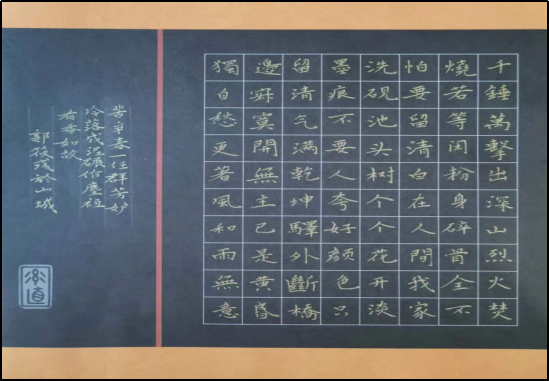 千錘萬擊出深山烈火焚
燒若等闲粉身碎骨全不
怕要留清白在人間我家
洗硯池头树个个花开淡
墨痕不要人夸好颜色只
留清气满乾坤驛外斷橋
邊寂寞開無主已是黄昏
獨自愁更著風和雨無意
苦争春一任群芳妒
冷落成泥碾作塵祗
有香如故
郭筱於山城